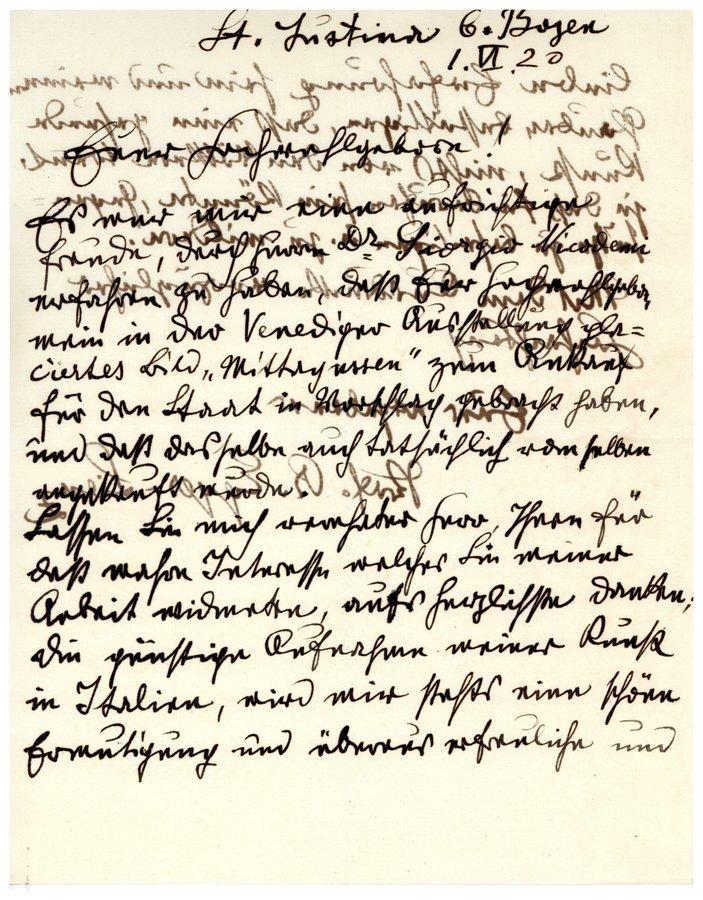 St. Justina b. Bozen
1. VI. 20
Euer Hochwohlgeboren!
Es war mir eine aufrichtige
Freude, durch Herrn Dr. Giorgio Nicodemi
erfahren zu haben, daß Euer Hochwohlgebor.
mein in der Venediger Ausstellung pla=
ciertes Bild „Mittagessen“ zum Ankauf
für den Staat in Vorschlag gebracht haben,
und daß dasselbe auch tatsächlich vom selben
angekauft wurde.
Lassen Sie mich verehrter Herr, Ihnen für
daß wahre Interesse welches Sie meiner
Arbeit widmeten, aufs herzlichste danken,
die günstige Aufnahme meiner Kunst
in Italien, wird mir stehts eine schöne
Ermutigung und überaus erfreuliche und